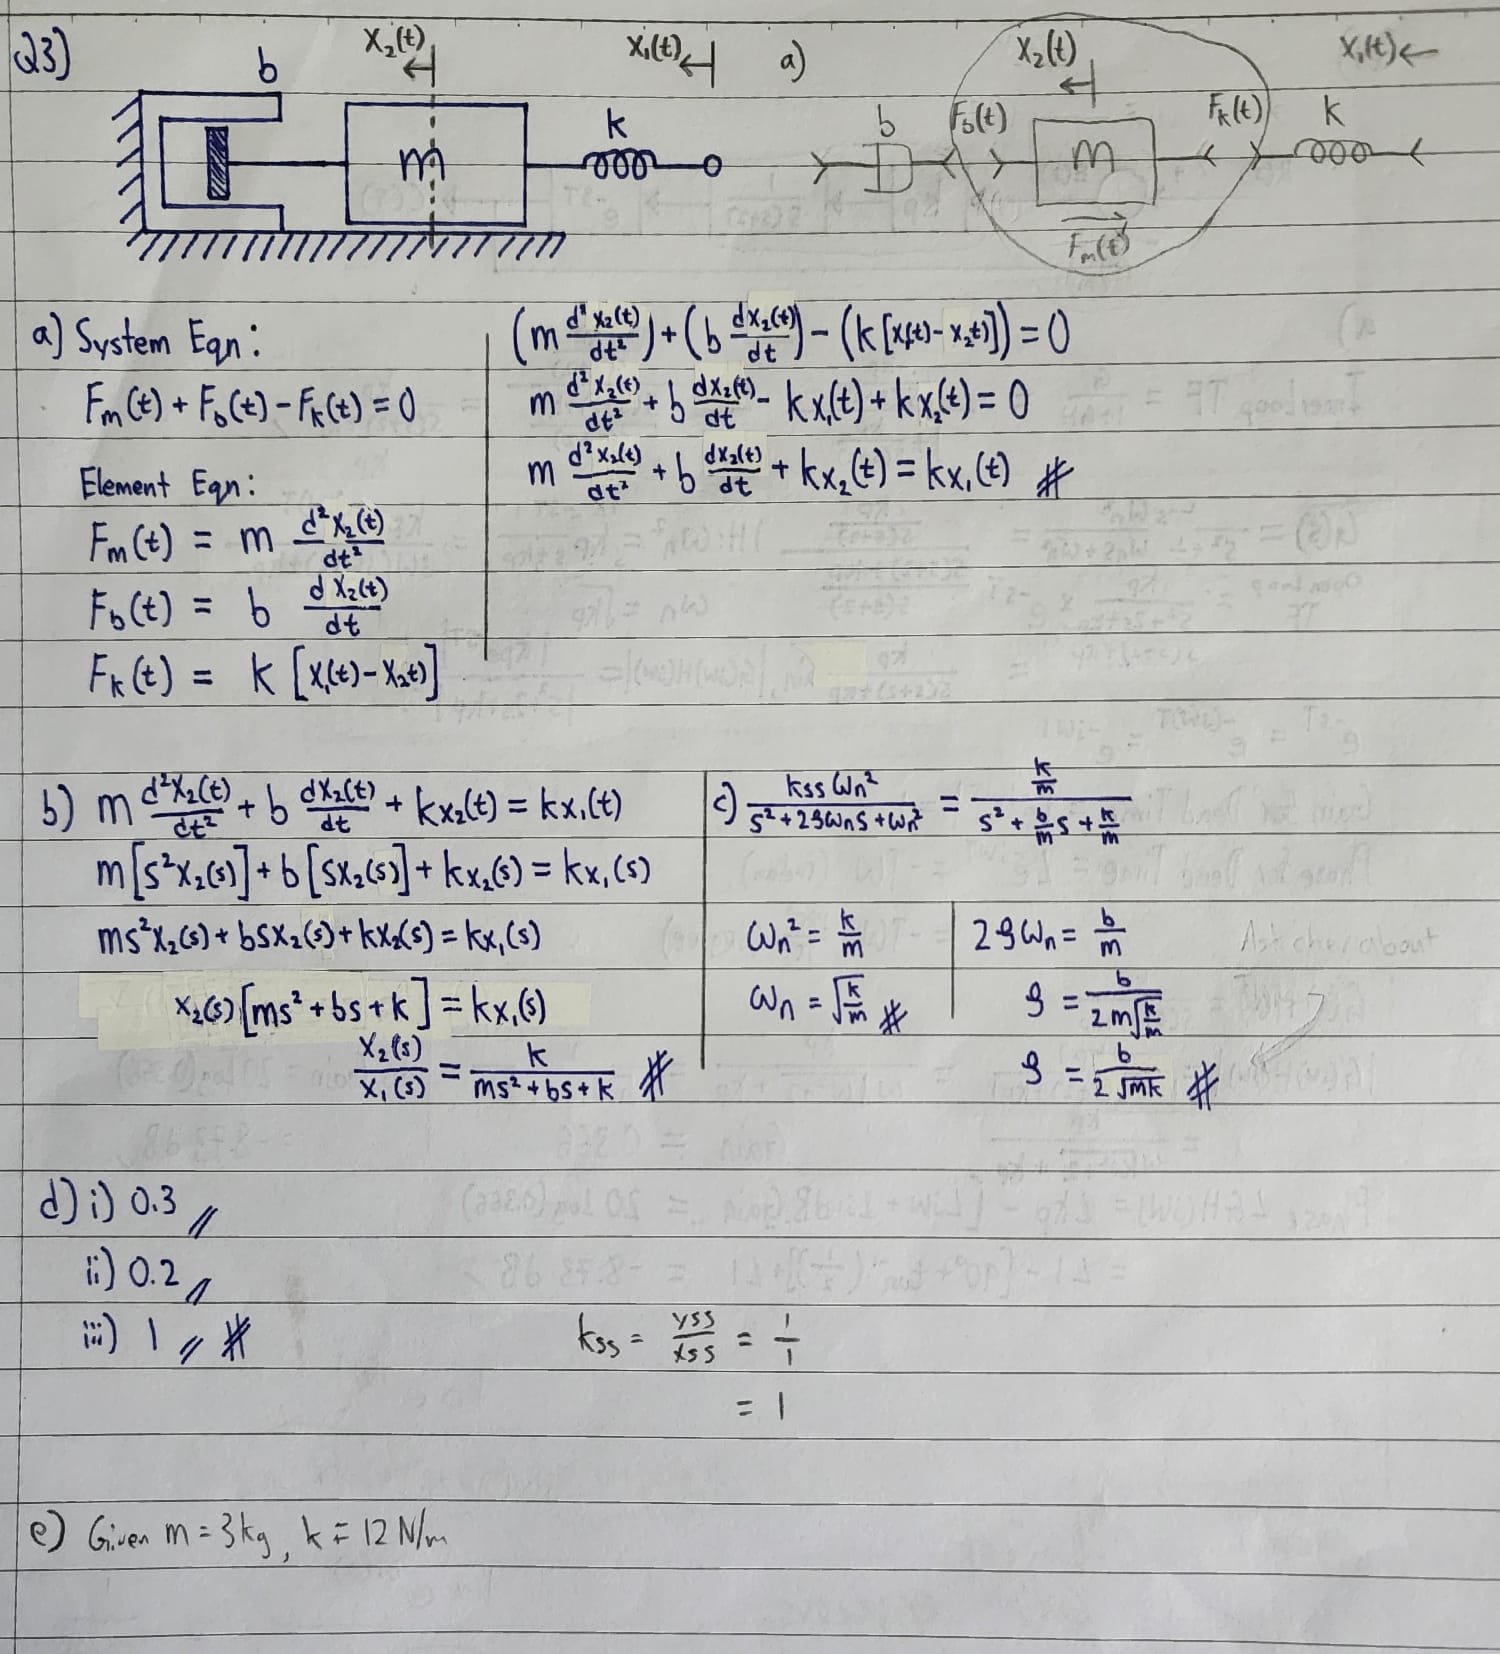 Q3)
b
X₂(t)
X₁(t)
m
k
a)
X₂(t)
X₁(t)
b
F_b(t)
m
F_k(t)
k
F_m(t)
a) System Eqn:
F_m(t) + F_b(t) - F_k(t) = 0
Element Eqn:
F_m(t) = m d²X₂(t)/dt²
F_b(t) = b dX₂(t)/dt
F_k(t) = k [X₁(t) - X₂(t)]
(m d²x₂(t)/dt²) + (b dx₂(t)/dt) - (k [x₁(t) - x₂(t)]) = 0
m d²x₂(t)/dt² + b dx₂(t)/dt - kx₁(t) + kx₂(t) = 0
m d²x₂(t)/dt² + b dx₂(t)/dt + kx₂(t) = kx₁(t) #
b) m d²x₂(t)/dt² + b dx₂(t)/dt + kx₂(t) = kx₁(t)
m[s²x₂(s)] + b[sx₂(s)] + kx₂(s) = kx₁(s)
ms²x₂(s) + bsx₂(s) + kx₂(s) = kx₁(s)
x₂(s)[ms² + bs + k] = kx₁(s)
X₂(s)/X₁(s) = k/(ms² + bs + k) #
c) kss ωn²/(s² + 2ζωns + ωn²) = (k/m)/(s² + (b/m)s + k/m)
ωn² = k/m
ωn = √(k/m) #
2ζωn = b/m
ζ = b/(2m√(k/m))
ζ = b/(2√mk) #
d) i) 0.3 //
ii) 0.2 //
iii) 1 // #
kss = yss/xss = 1/1
= 1
e) Given m = 3kg, k = 12 N/m